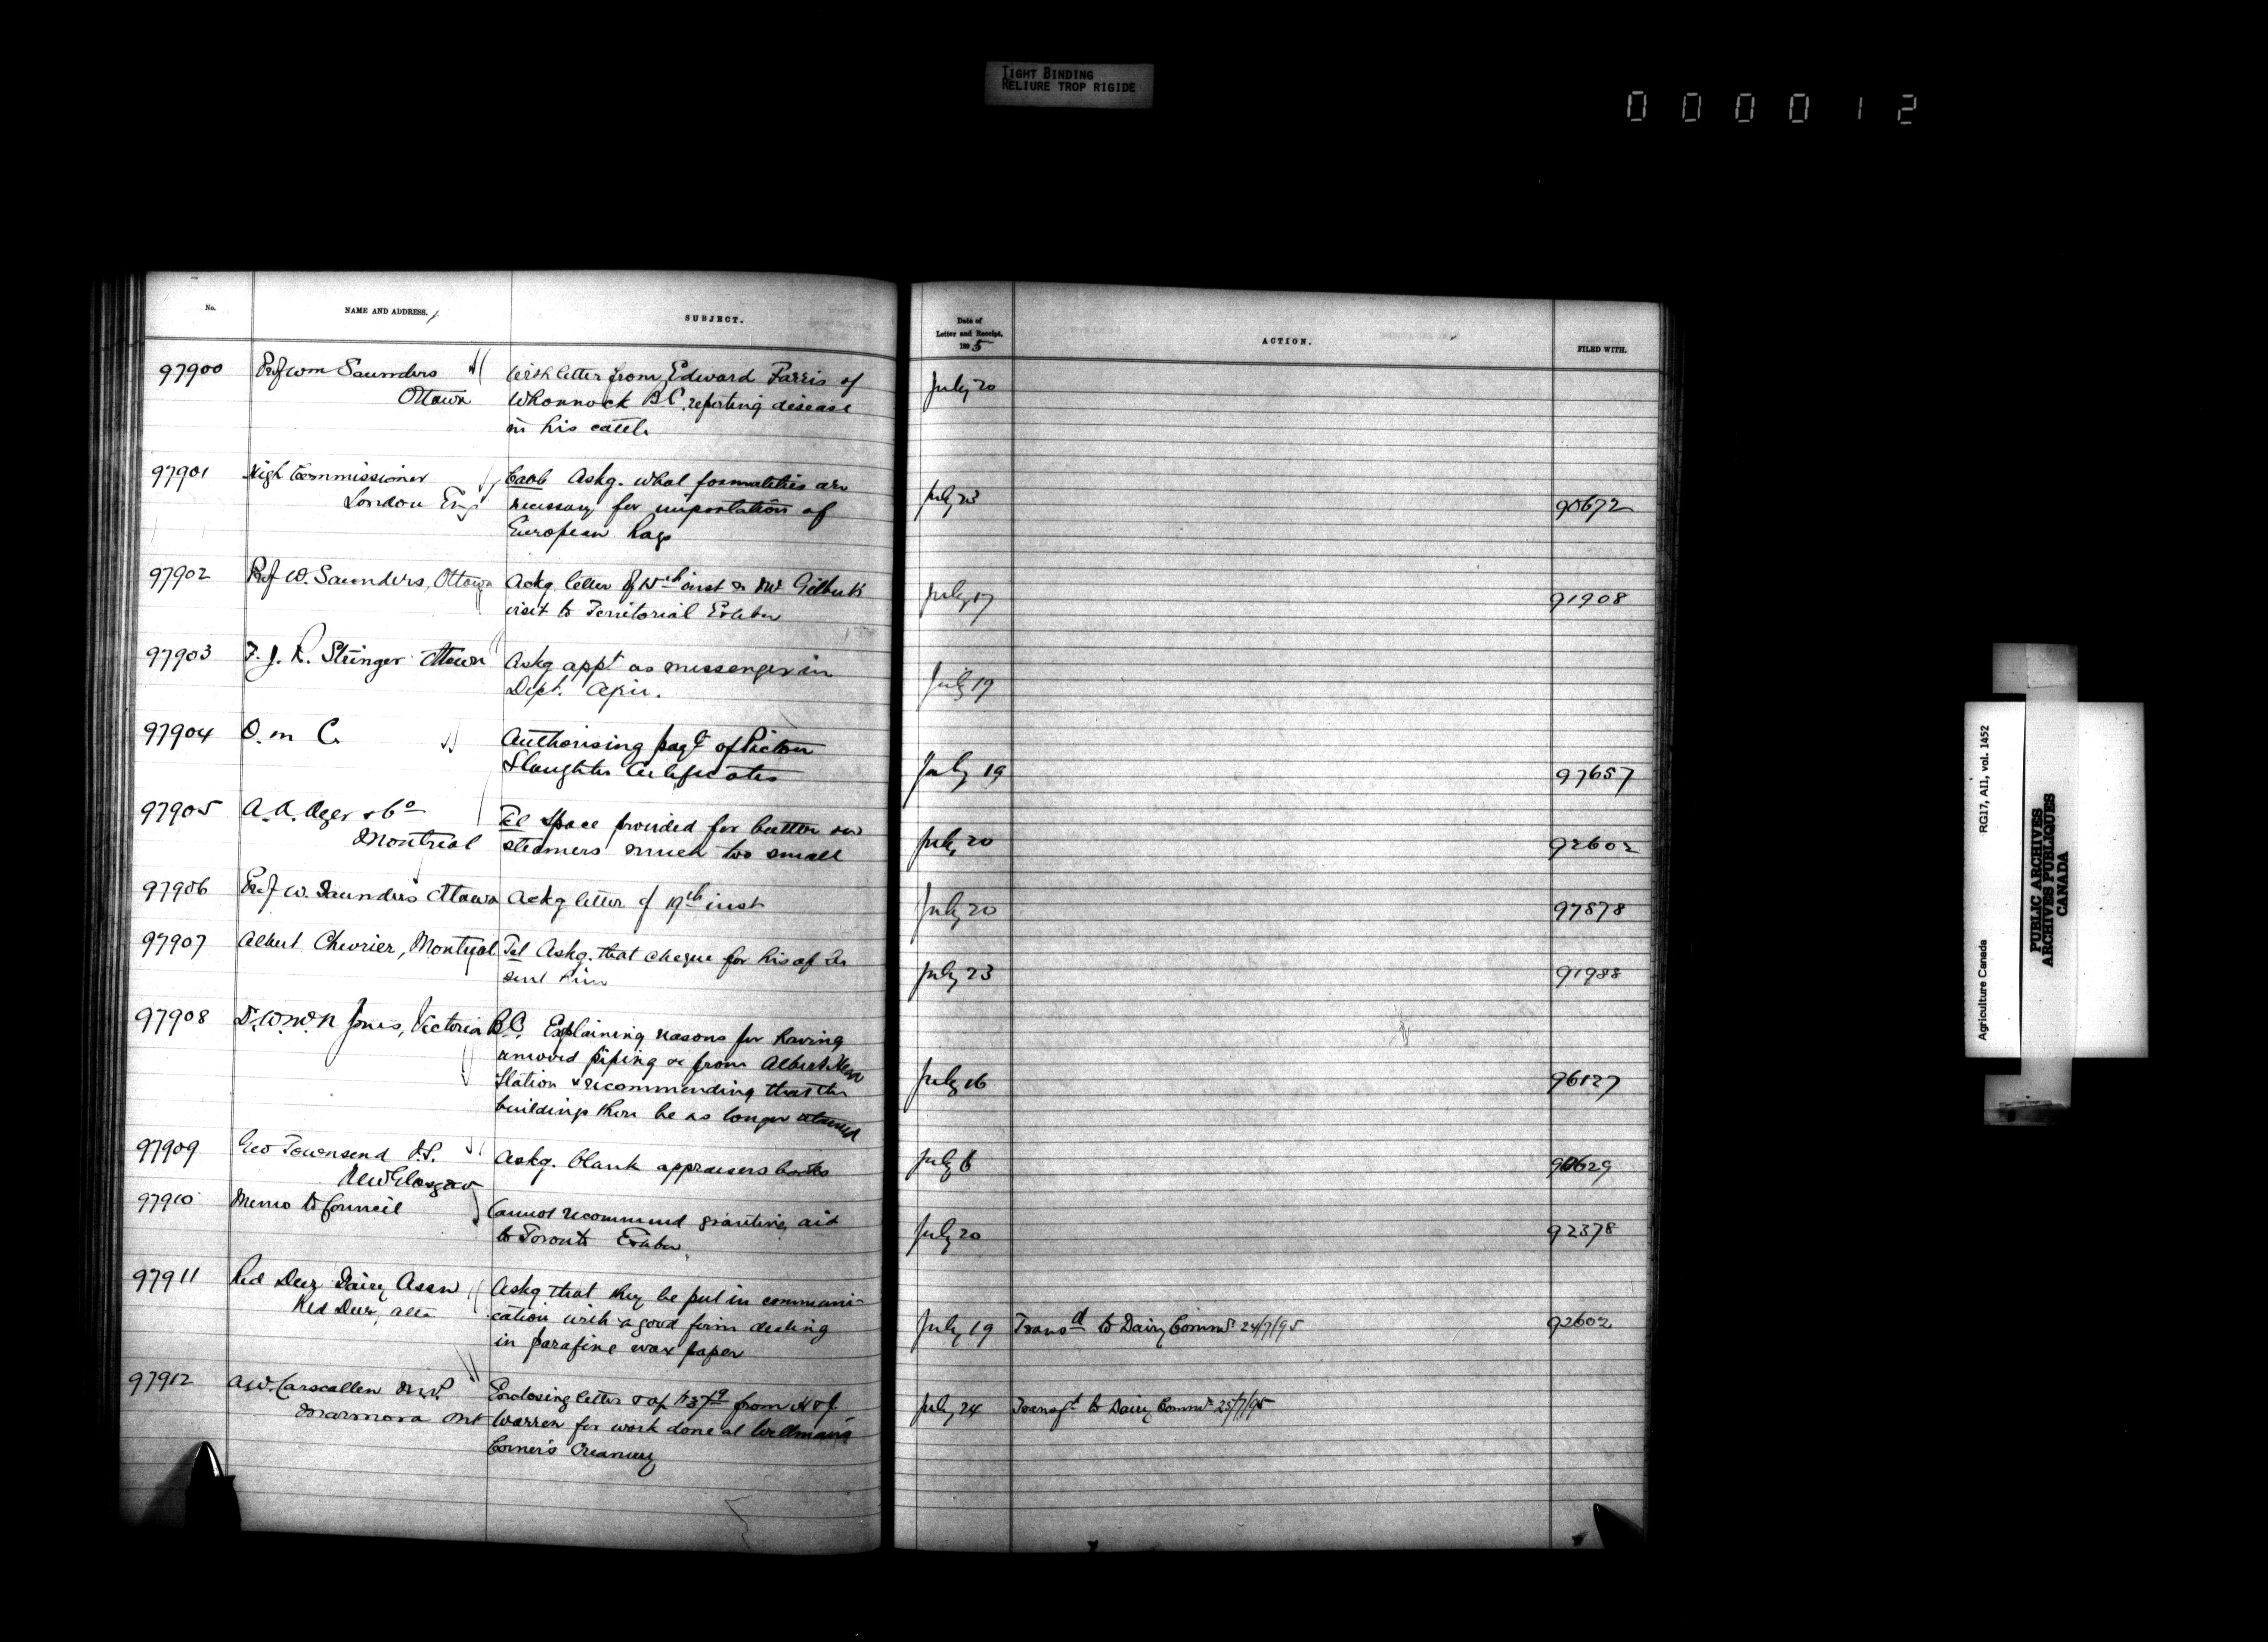 TIGHT BINDING
RELIURE TROP RIGIDE
000012
No.
NAME AND ADDRESS.
SUBJECT.
Date of
Letter and Receipt.
1895
ACTION.
FILED WITH.
97900
Prof Wm Saunders
Ottawa
With letter from Edward Farris of
Whonnock B.C. reporting disease
in his cattle
July 20
97901
High Commissioner
London Eng
Askg. what formalities are
necessary for importation of
European Rags
July 23
90672
97902
Prof W. Saunders, Ottawa
Ackg letter of inst
visit to Territorial Exhbn
July 17
91908
97903
F. J. R. Stringer Ottawa
Askg appt as messenger in
Dept. Agir.
July 19
97904
O. in C.
Authorising payt of Pictou
Slaughter Certificates
July 19
97657
97905
A. A. Ayer & Co
Montreal
Tel Space provided for butter on
steamers much too small
July 20
92602
97906
Prof W. Saunders Ottawa
Ackg letter of 19th inst
July 20
97878
97907
Albert Chevrier, Montreal
Tel Askg. that cheque for his be
sent him
July 23
91988
97908
Dr. W. Jones, Victoria B.C.
Explaining reasons for having
removed piping &c from Albert Head
Station & recommending that the
buildings there be no longer
July 16
96127
97909
Geo Townsend
New Glasgow
Askg. blank appraisers books
July 6
97910
Memo to Council
Cannot recommend granting aid
to Toronto Exhbn.
July 20
92378
97911
Red Deer Dairy Assn
Red Deer, Alta
Askg that they be put in communi-
cation with a good firm dealing
in parafine wax paper
July 19
Transd to Dairy Commr 24/7/95
92602
97912
A. W. Carscallen M.P.
Marmora Ont
Enclosing letter from H & J.
Warren for work done at Wellman's
Corner's Creamery
July 24
to Dairy Commr 25/7/95
RG17, AII, vol. 1452
Agriculture Canada
PUBLIC ARCHIVES
ARCHIVES PUBLIQUES
CANADA